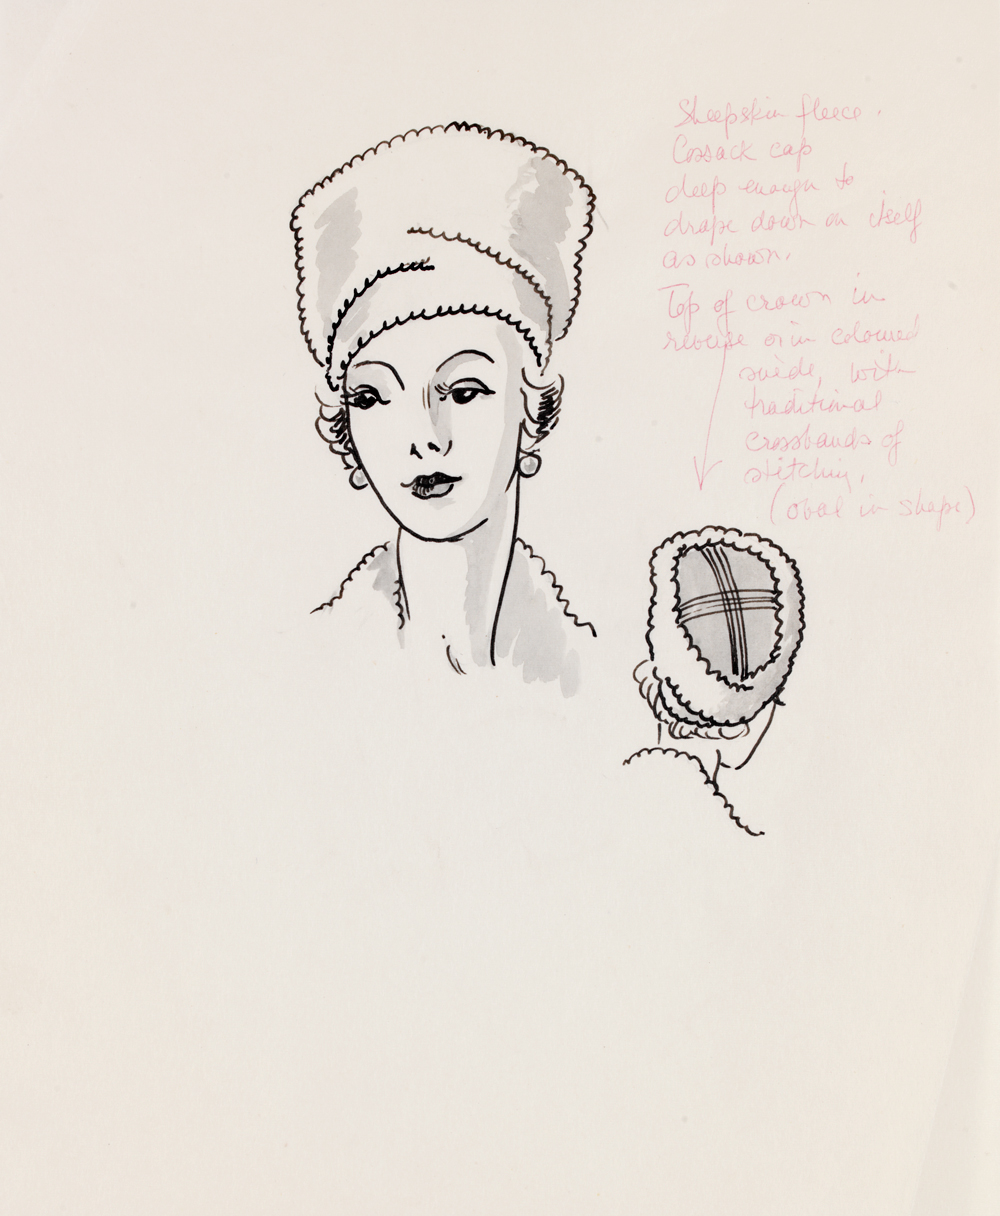 Sheepskin fleece.
Cossack cap
deep enough to
drape down on itself
as shown.
Top of crown in
reverse or in coloured
suède, with
traditional
crossbands of
stitching.
(oval in shape)